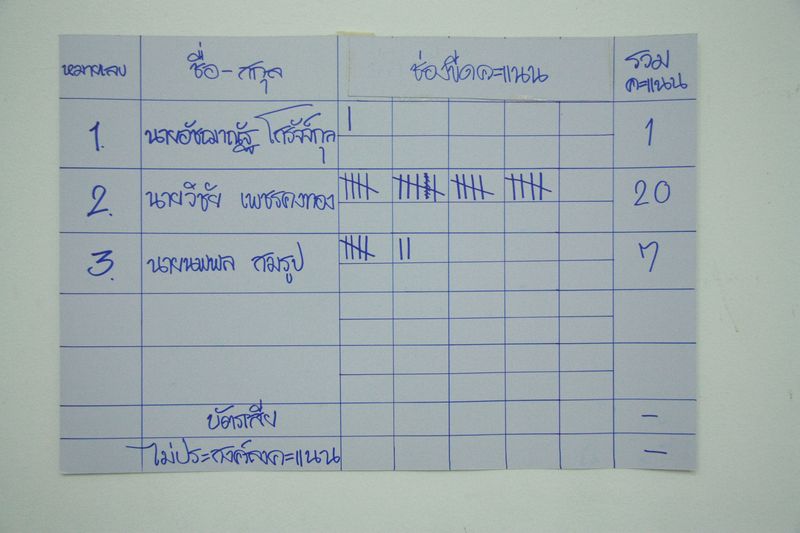 หมายเลข ชื่อ-สกุล ช่องขีดคะแนน รวมคะแนน
1. 1
2. นายวิชัย เพชรคงทอง 20
3. นายนพพล สมรูป 7
บัตรเสีย -
ไม่ประสงค์ลงคะแนน -